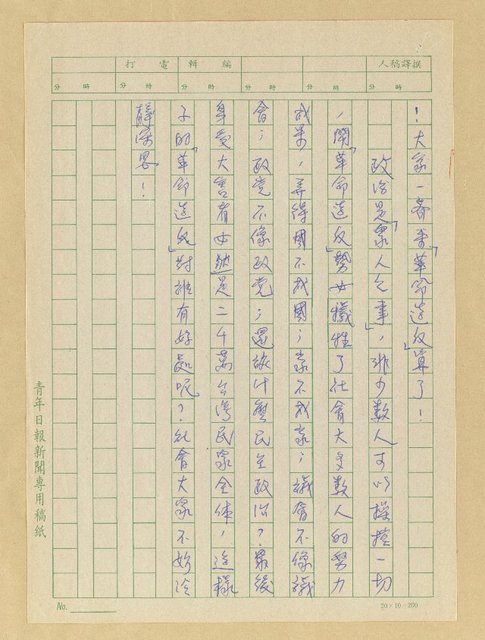 撰譯稿人
編輯
電打
時 分 時 分 時 分 時 分
！大家一齊來「革命造反」算了！
政治是「眾人之事」，非少數人可以操控一切
，鬧「革命造反」勢必犧牲了社會大多數人的努力
成果，弄得國不成國；家不成家；議會不像議
會；政党不像政党；還談什麼民主政治？最後
身受大害者必然是二千萬台灣民眾全体，這樣
子的「革命造反」對誰有好處呢？社會大眾不妨冷
靜深思！
青年日報新聞專用稿紙
No.
20×10=200